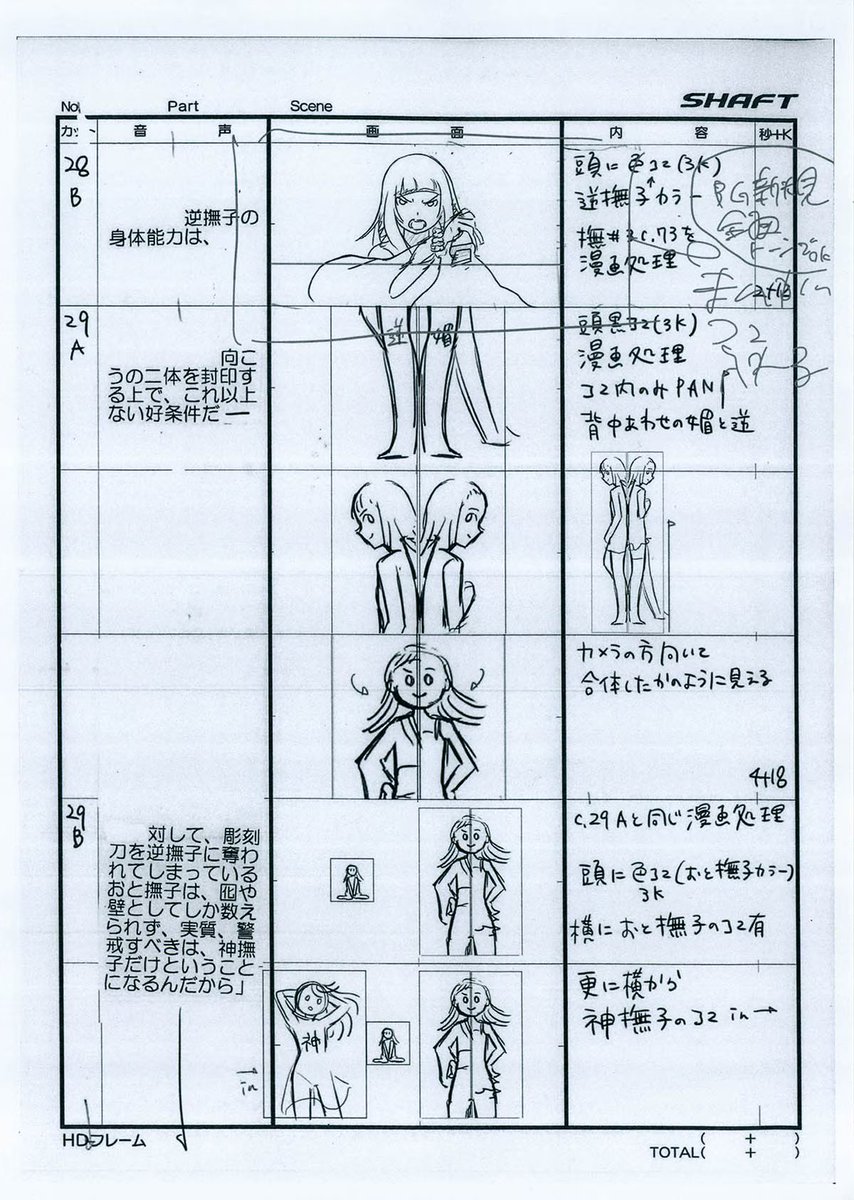 SHAFT
No. Part Scene
カット 音声 画面 内容 秒+K
28
B
逆撫子の
身体能力は、
頭に色コマ(3K)
逆撫子カラー
撫#3C.73を
漫画処理
29
A
向こ
うの二体を封印す
る上で、これ以上
ない好条件だ ―
逆 媚
頭黒コマ(3K)
漫画処理
コマ内のみPAN
背中あわせの媚と逆
カメラの方向いて
合体したかのように見える
4+18
29
B
対して、彫刻
刀を逆撫子に奪わ
れてしまっている
おと撫子は、囮や
壁としてしか数え
られず、実質、警
戒すべきは、神撫
子だけということ
になるんだから」
C.29Aと同じ漫画処理
頭に色コマ(おと撫子カラー)
3K
横におと撫子のコマ有
神
→
in
更に横から
神撫子のコマ in→
HDフレーム
( + )
TOTAL( + )